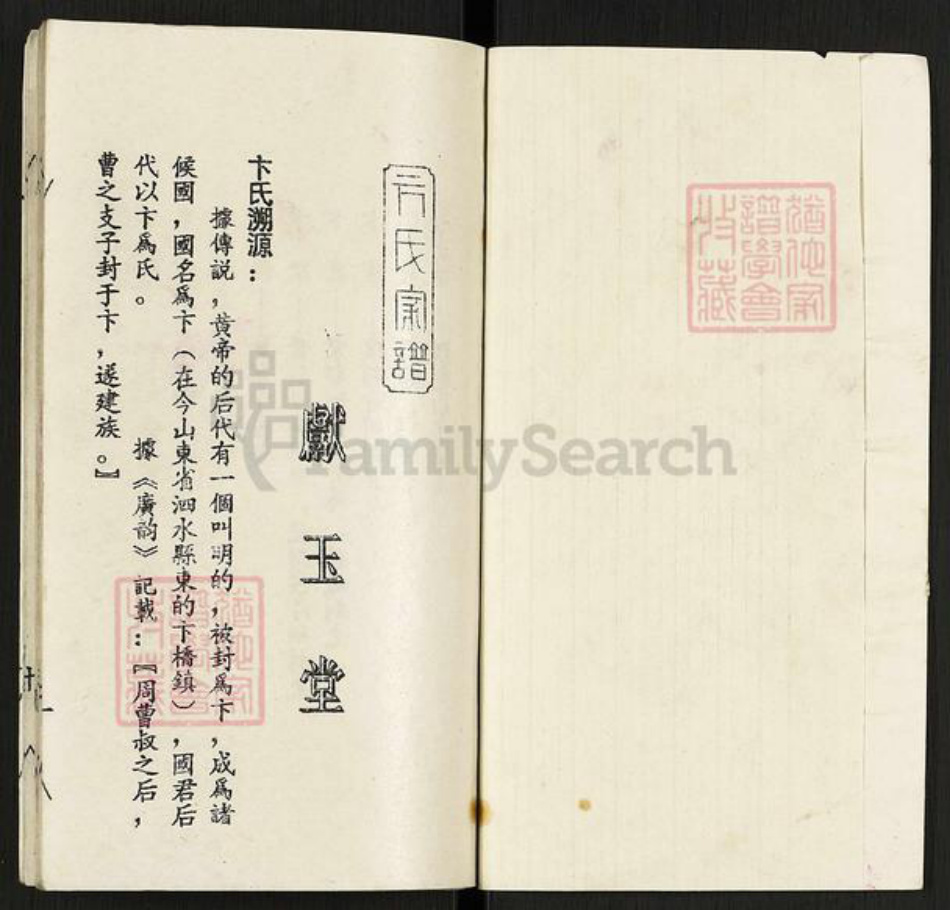 猶他家
譜學會
收藏
卞氏家譜
獻玉堂
卞氏溯源：
據傳説，黄帝的后代有一個叫明的，被封爲卞，成爲諸
候國，國名爲卞（在今山東省泗水縣東的卞橋鎮），國君后
代以卞爲氏。
據《廣韵》記載：『周曹叔之后，
曹之支子封于卞，遂建族。』
猶他家
譜學會
收藏
FamilySearch